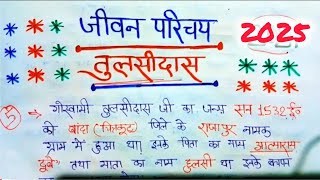 जीवन परिचय
2025
तुलसीदास
5 → गोस्वामी तुलसीदास जी का जन्म सन 1532 ई०
को बांदा (चित्रकूट) जिले के राजापुर नामक
ग्राम में हुआ था। इनके पिता का नाम आत्माराम
दुबे तथा माता का नाम हुलसी था इनके